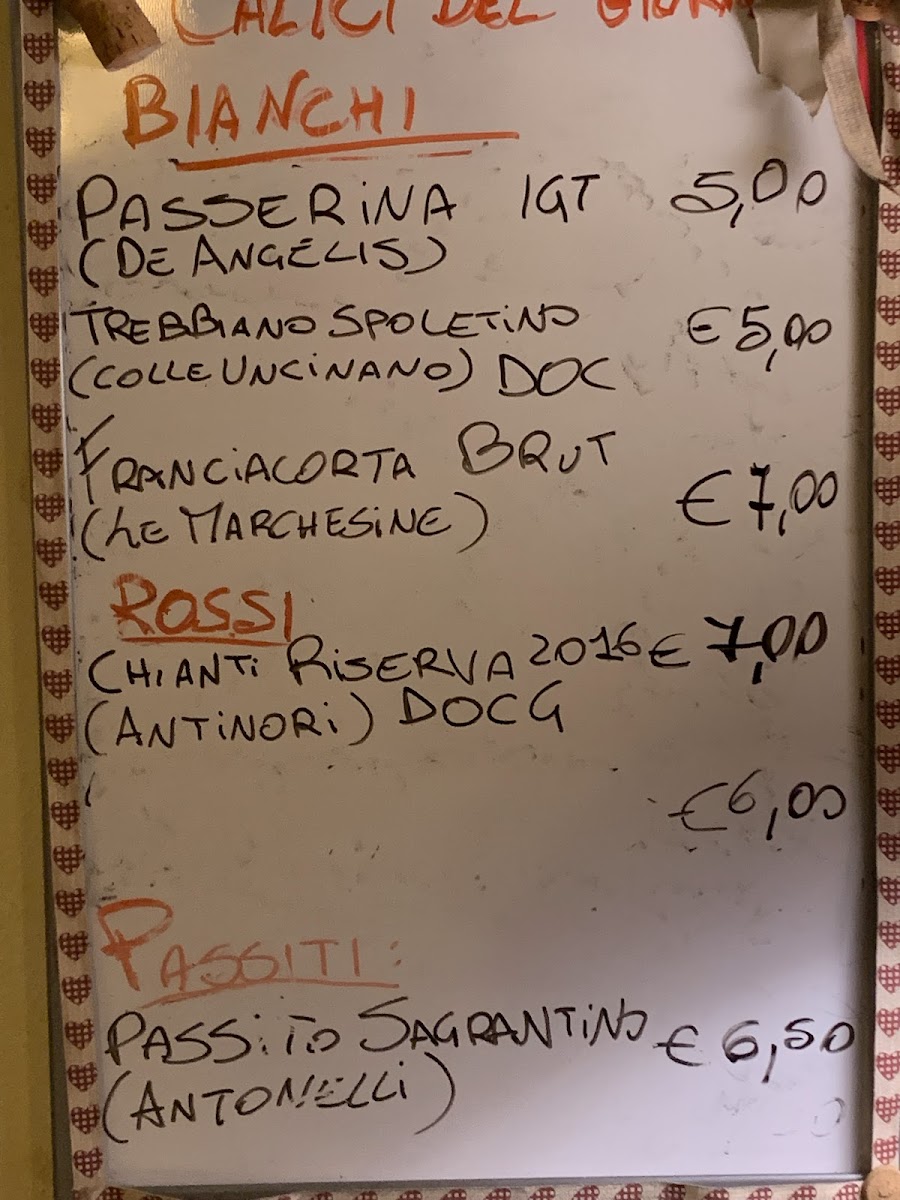 CALICI DEL GIORN
BIANCHI
PASSERINA IGT 5,00
(DE ANGELIS)
TREBBIANO SPOLETINO € 5,00
(COLLE UNCINANO) DOC
FRANCIACORTA BRUT
(LE MARCHESINE) € 7,00
ROSSI
CHIANTI RISERVA 2016 € 7,00
(ANTINORI) DOCG
€ 6,00
PASSITI:
PASSITO SAGRANTINO € 6,50
(ANTONELLI)